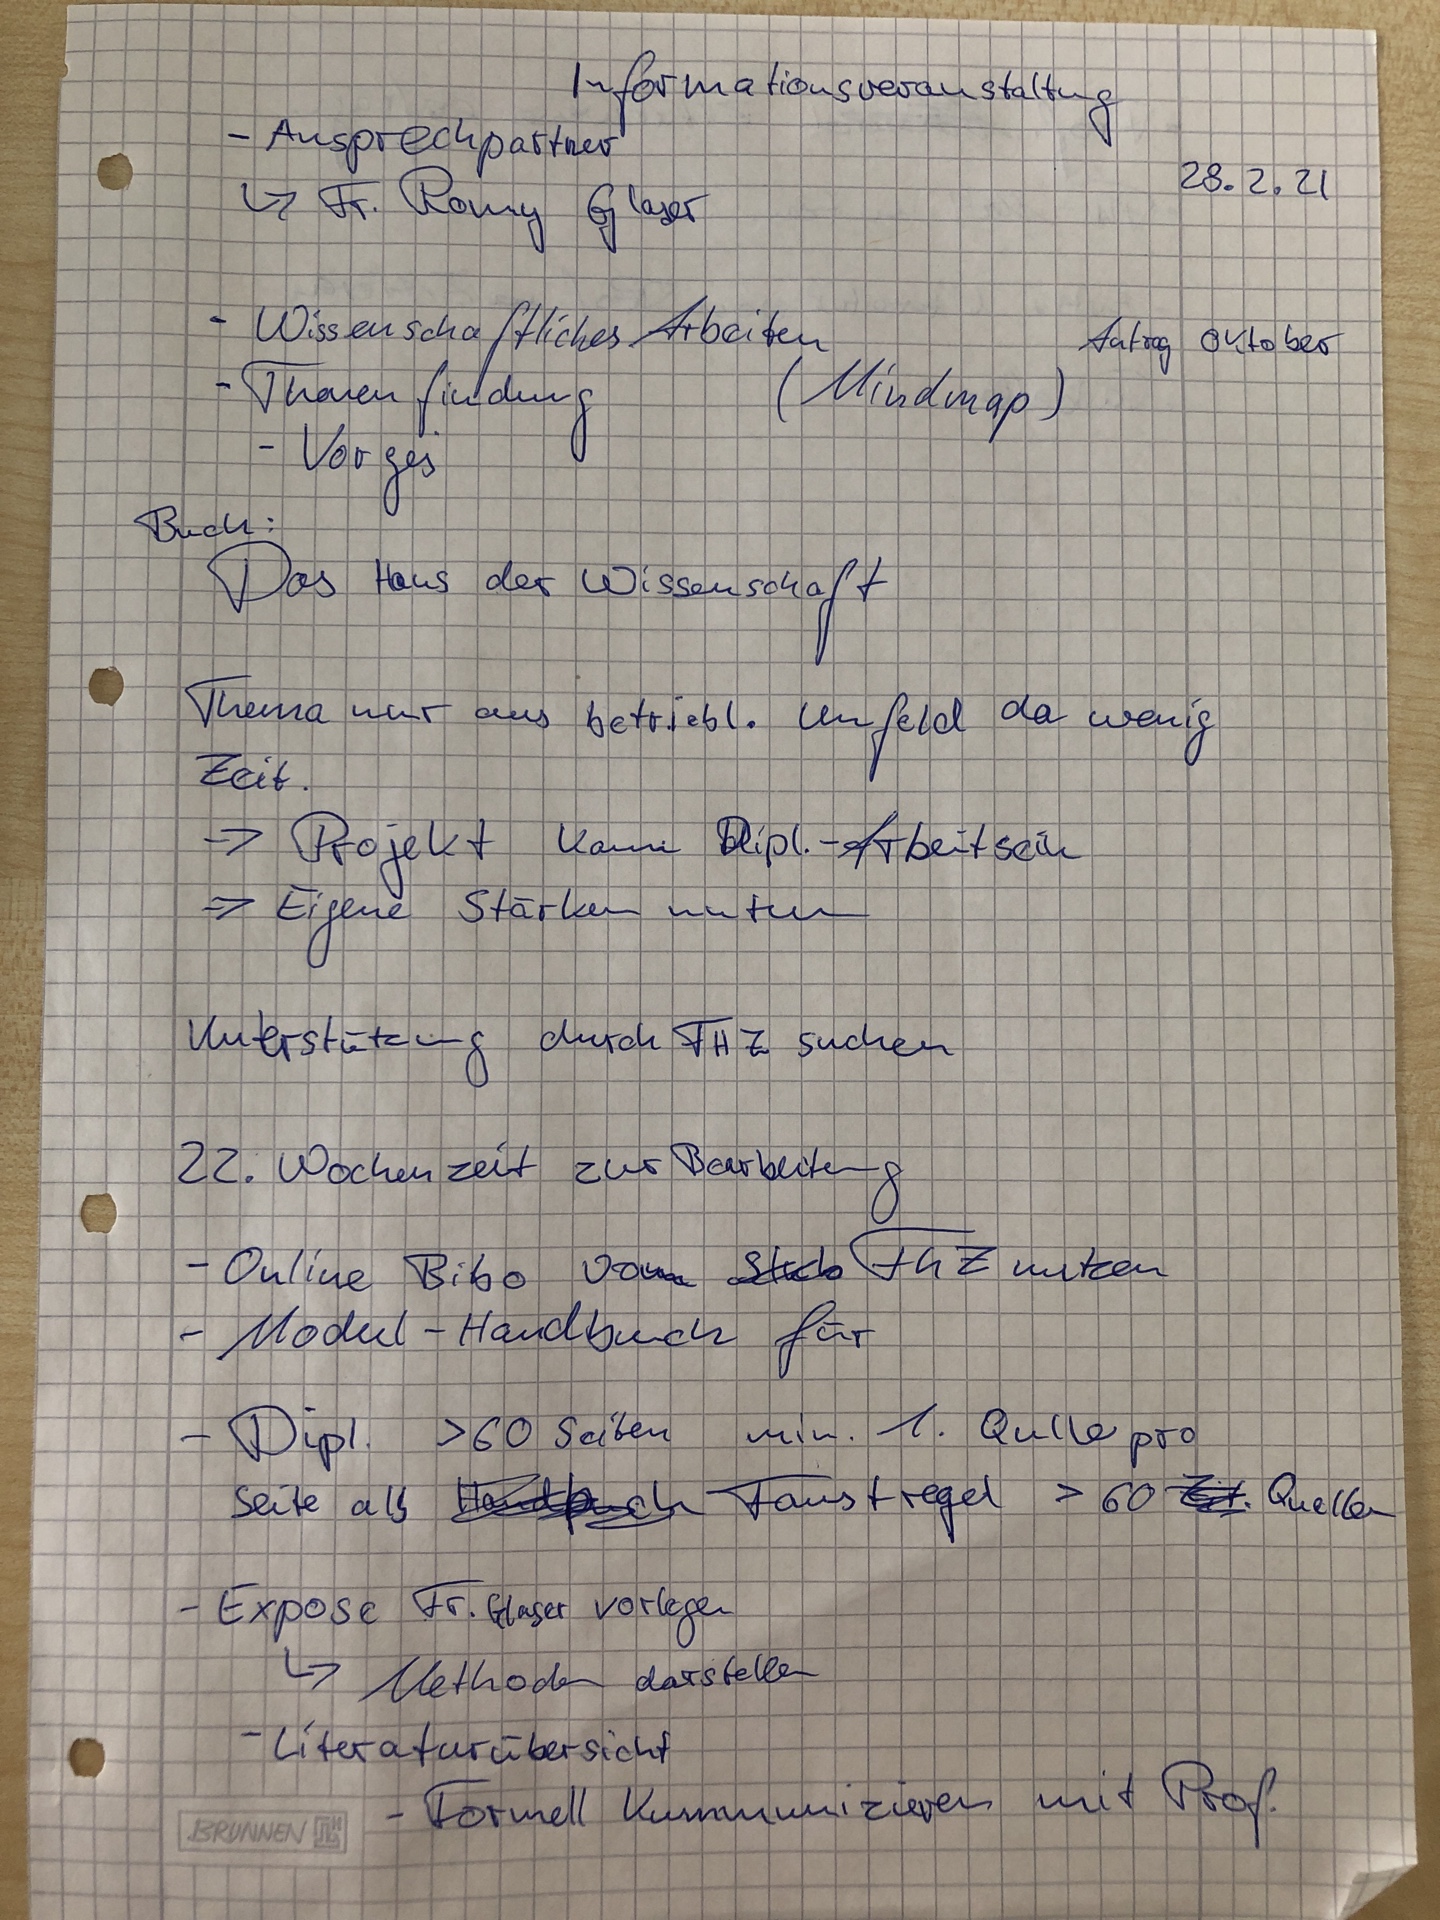 Informationsveranstaltung
- Ansprechpartner
28.2.21
↳ Fr. Romy Glaser
- Wissenschaftliches Arbeiten
Antrag Oktober
- Themenfindung (Mindmap)
- Vorges
Buch:
Das Haus der Wissenschaft
Thema nur aus betriebl. Umfeld da wenig
Zeit.
=> Projekt kann Dipl.-Arbeit sein
=> Eigene Stärken nutzen
Unterstützung durch THZ suchen
22. Wochenzeit zur Bearbeitung
- Online Bibo von ThZ nutzen
- Modul-Handbuch für
- Dipl. >60 Seiten min. 1. Quelle pro
Seite als Faustregel > 60 Quellen
- Expose Fr. Glaser vorlegen
↳ Methoden darstellen
- Literaturübersicht
- Formell Kummunizieren mit Prof.
BRUNNEN